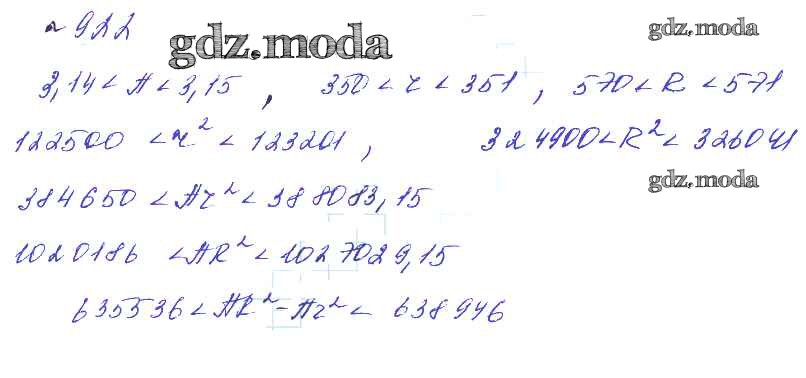 № 922
gdz.moda gdz.moda
3,14 < π < 3,15, 350 < r < 351, 570 < R < 571
122500 < r² < 123201, 324900 < R² < 326041
384650 < πr² < 388083,15
gdz.moda
1020186 < πR² < 1027029,15
635536 < πR² - πr² < 638946